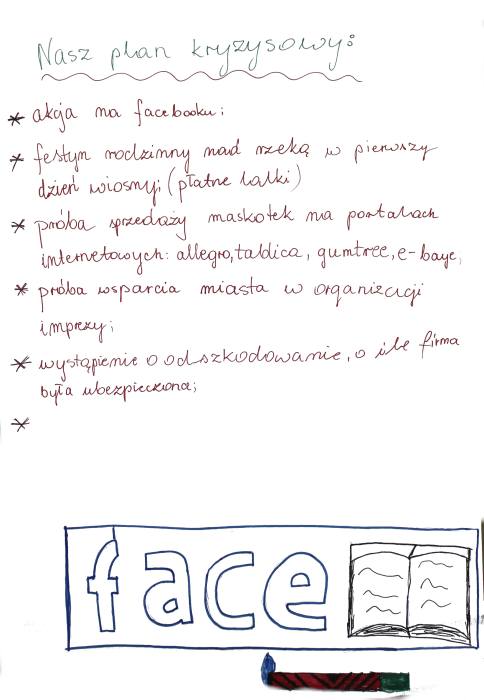 Nasz plan kryzysowy:
* akcja na facebooku;
* festyn rodzinny nad rzeką w pierwszy
dzień wiosny; (płatne lalki)
* próba sprzedaży maskotek na portalach
internetowych: allegro, tablica, gumtree, e-baye,
* próba wsparcia miasta w organizacji
imprezy;
* wystąpienie o odszkodowanie, o ile firma
była ubezpieczona;
*
face